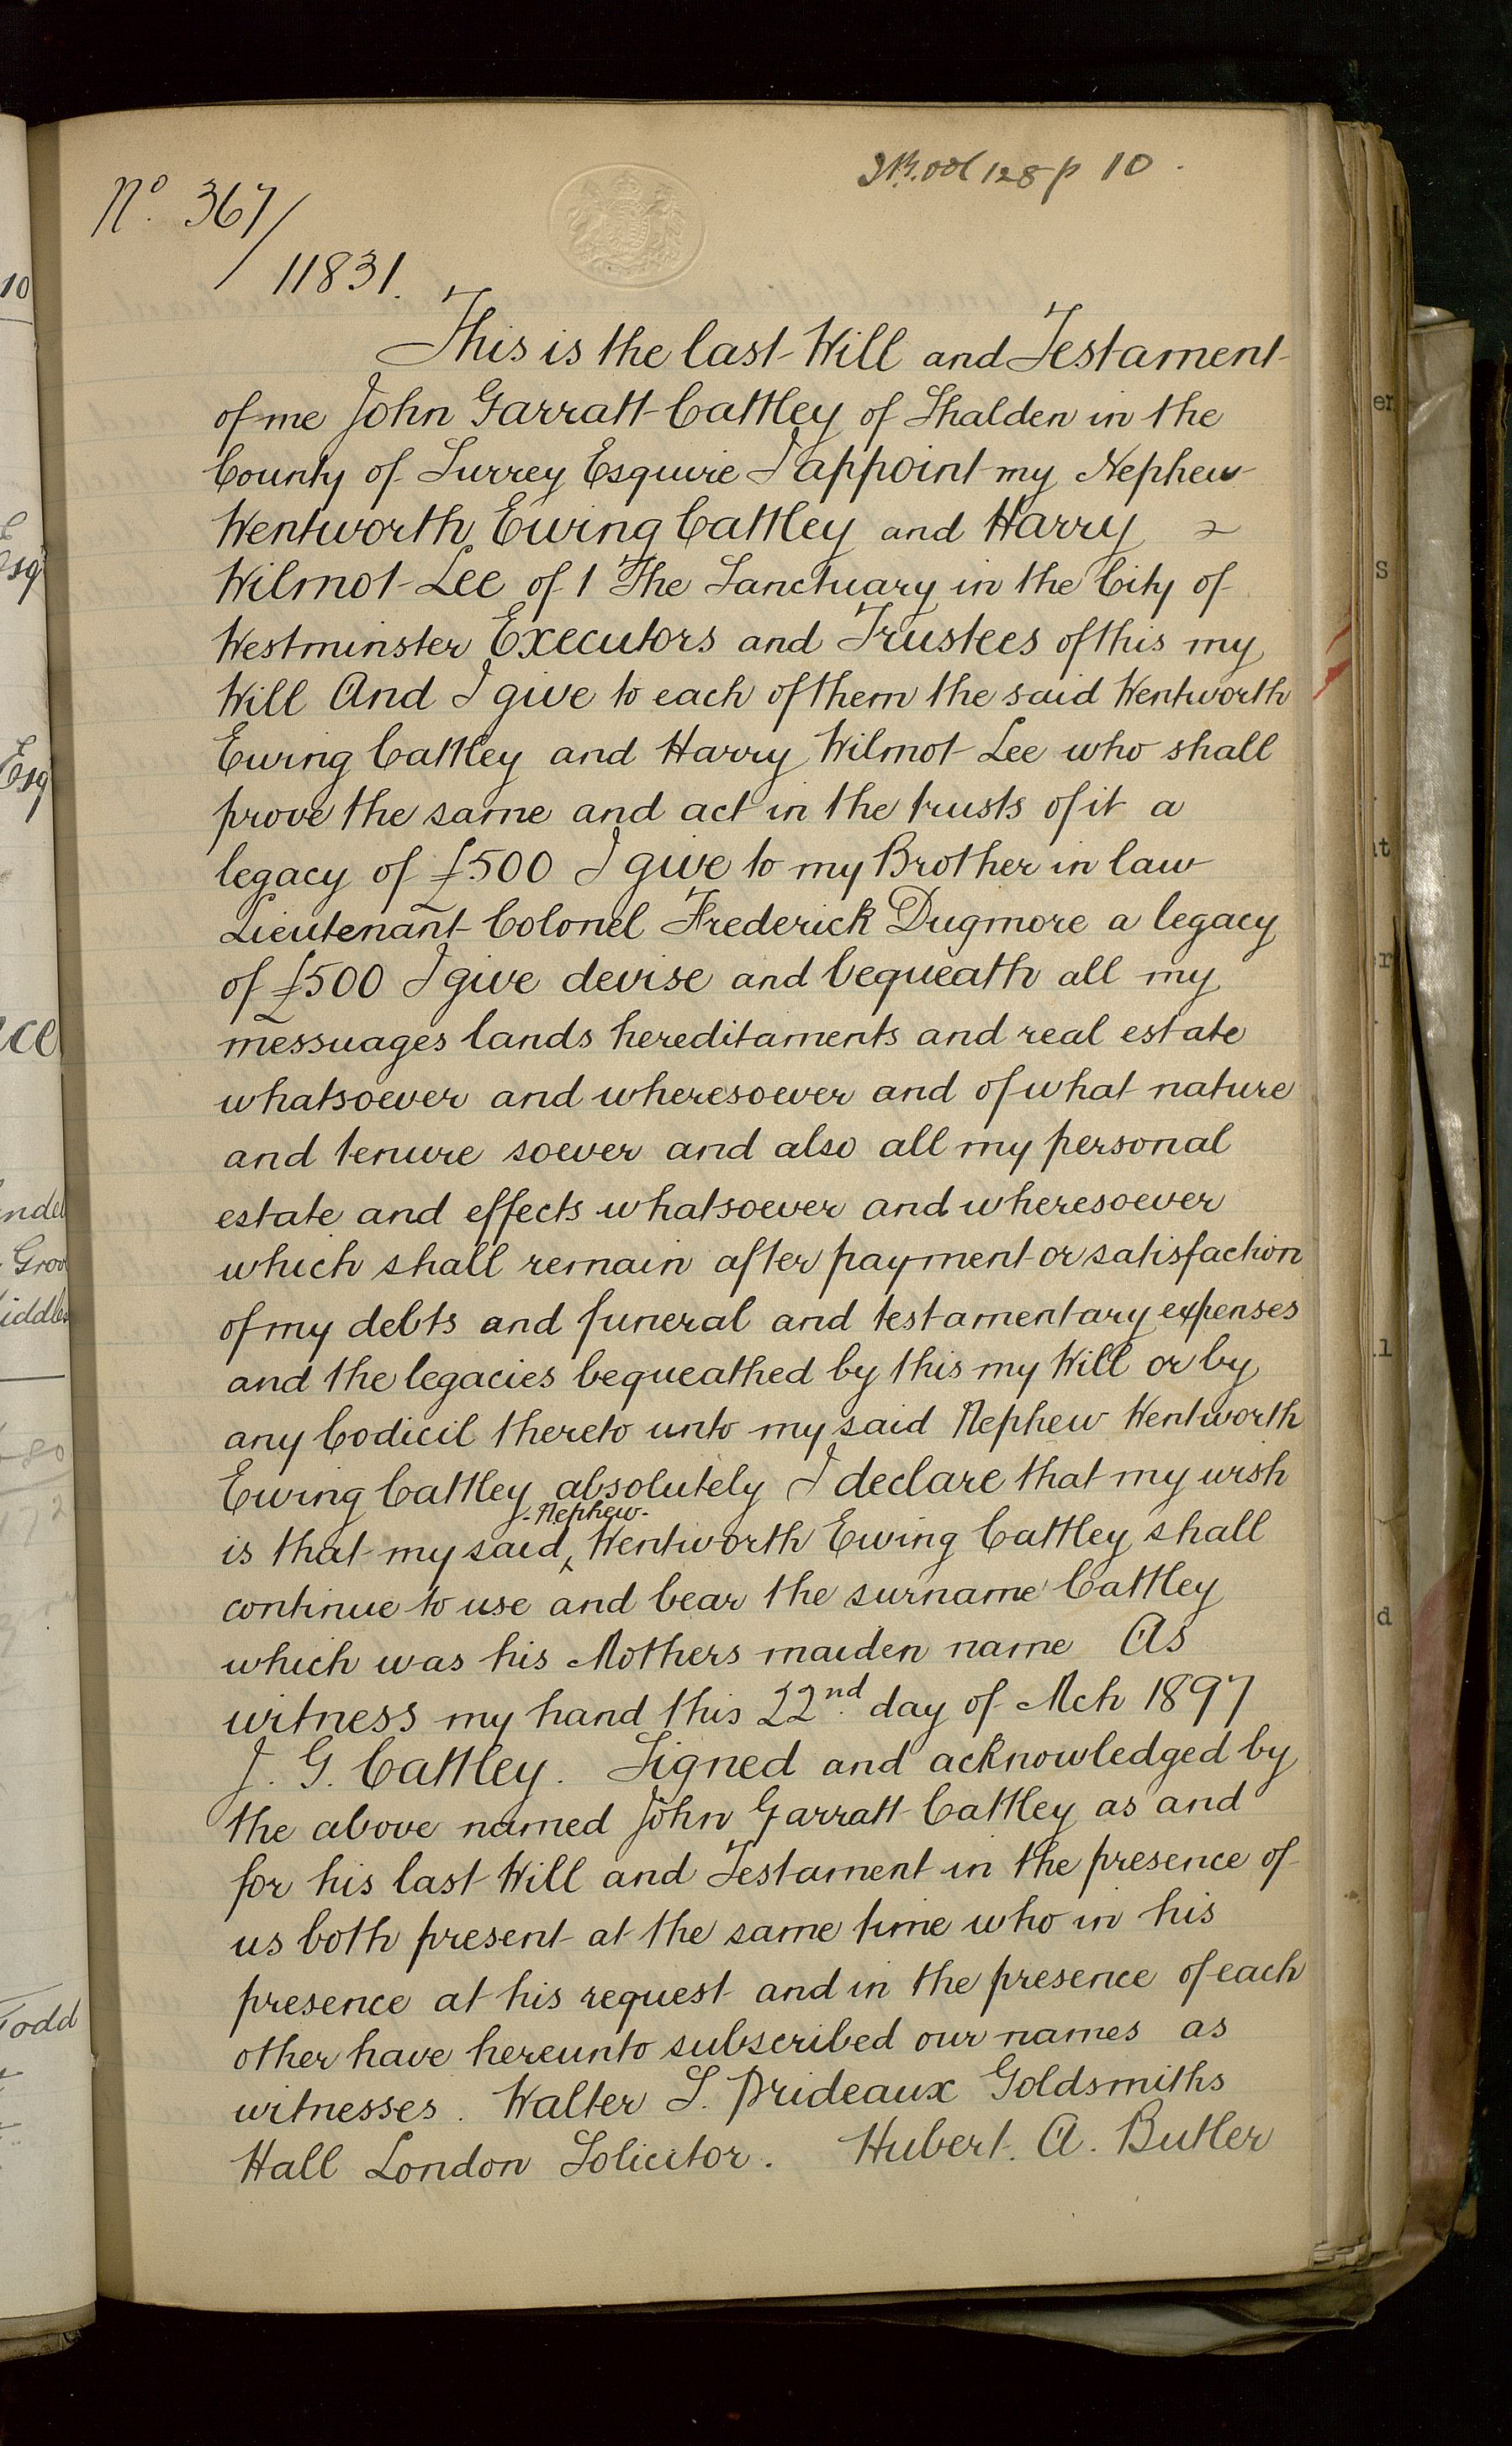 No. 367/
11831.
128 p 10.
This is the last Will and Testament
of me John Garratt Cattley of Shalden in the
County of Surrey Esquire I appoint my Nephew
Wentworth Ewing Cattley and Harry
Wilmot Lee of 1 The Sanctuary in the City of
Westminster Executors and Trustees of this my
Will And I give to each of them the said Wentworth
Ewing Cattley and Harry Wilmot Lee who shall
prove the same and act in the trusts of it a
legacy of £500 I give to my Brother in law
Lieutenant Colonel Frederick Dugmore a legacy
of £500 I give devise and bequeath all my
messuages lands hereditaments and real estate
whatsoever and wheresoever and of what nature
and tenure soever and also all my personal
estate and effects whatsoever and wheresoever
which shall remain after payment or satisfaction
of my debts and funeral and testamentary expenses
and the legacies bequeathed by this my Will or by
any Codicil thereto unto my said Nephew Wentworth
Ewing Cattley absolutely I declare that my wish
is that my said Nephew Wentworth Ewing Cattley shall
continue to use and bear the surname Cattley
which was his Mothers maiden name As
witness my hand this 22nd day of Mch 1897
J. G. Cattley. Signed and acknowledged by
the above named John Garratt Cattley as and
for his last Will and Testament in the presence of
us both present at the same time who in his
presence at his request and in the presence of each
other have hereunto subscribed our names as
witnesses. Walter S. Prideaux Goldsmiths
Hall London Solicitor. Hubert. A. Butler